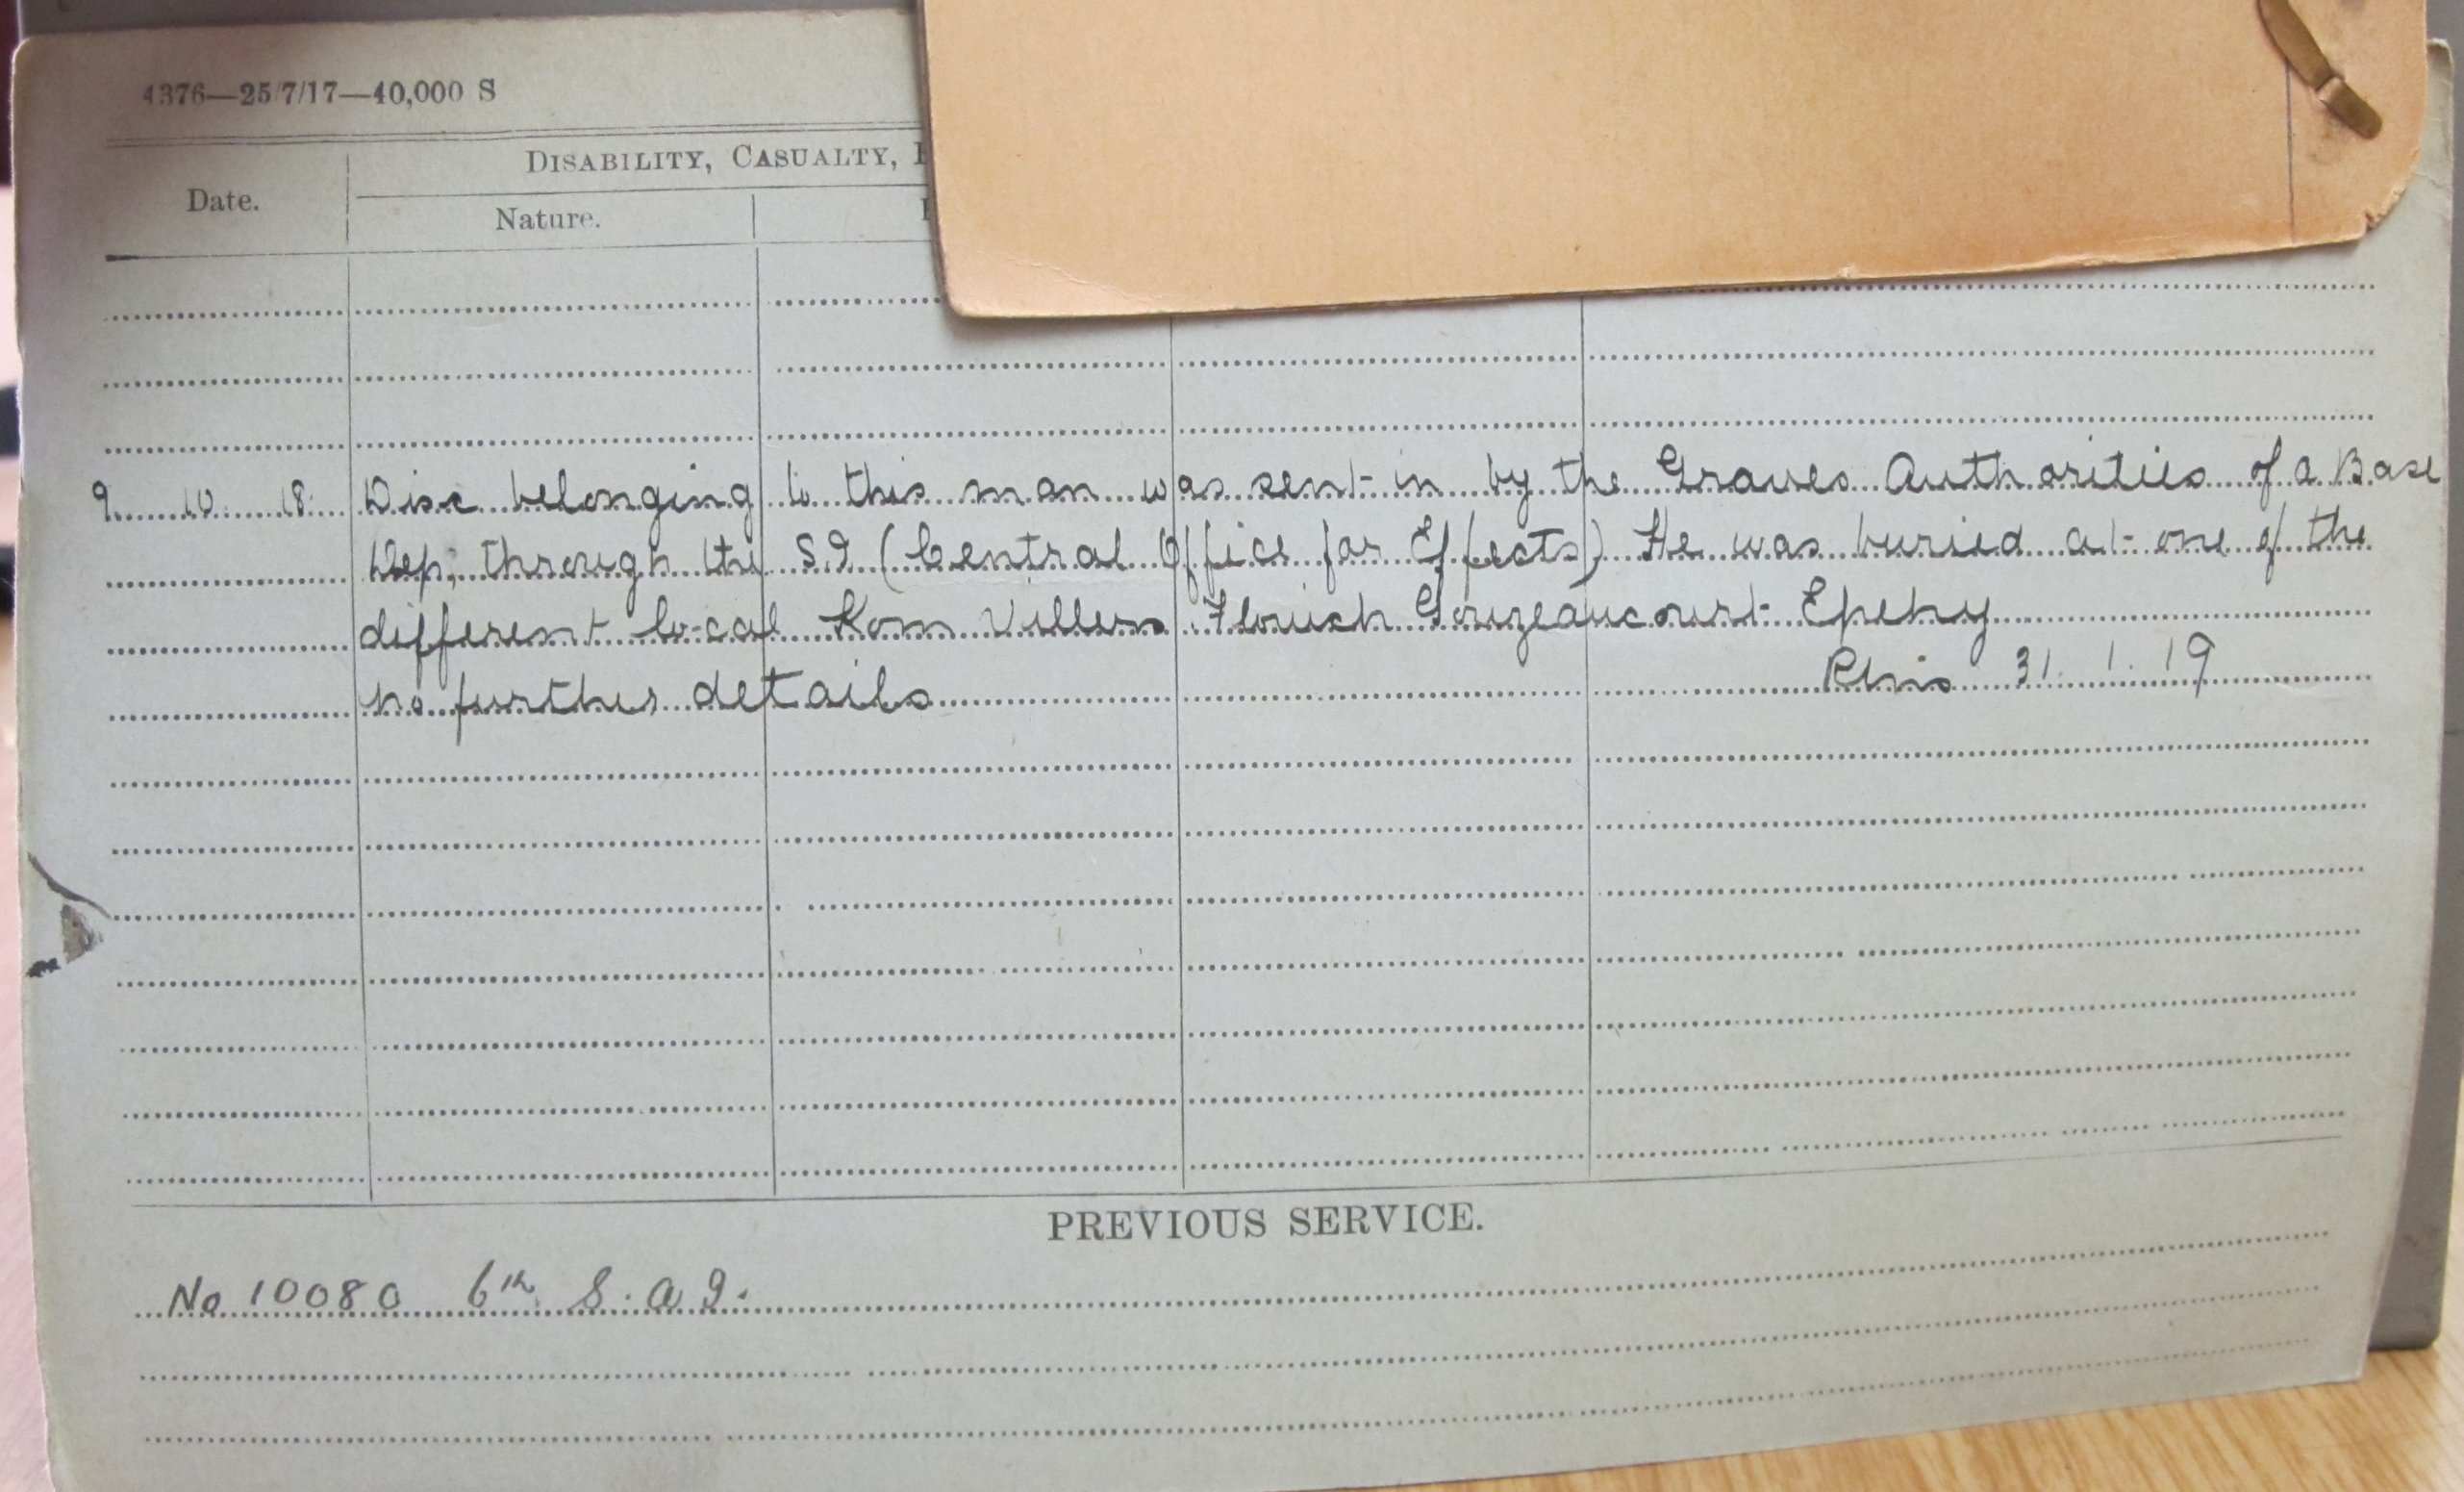 4376—25/7/17—40,000 S
DISABILITY, CASUALTY,
Date.
Nature.
9 10 18 Disc belonging to this man was sent in by the Graves Authorities of a Base
Dep; through the S.I (Central Office for Effects) He was buried at one of the
different local Kom Villers Flouich Gouzeaucourt Epehy
no further details 31.1.19
PREVIOUS SERVICE.
No 10080 6th S.A.I.